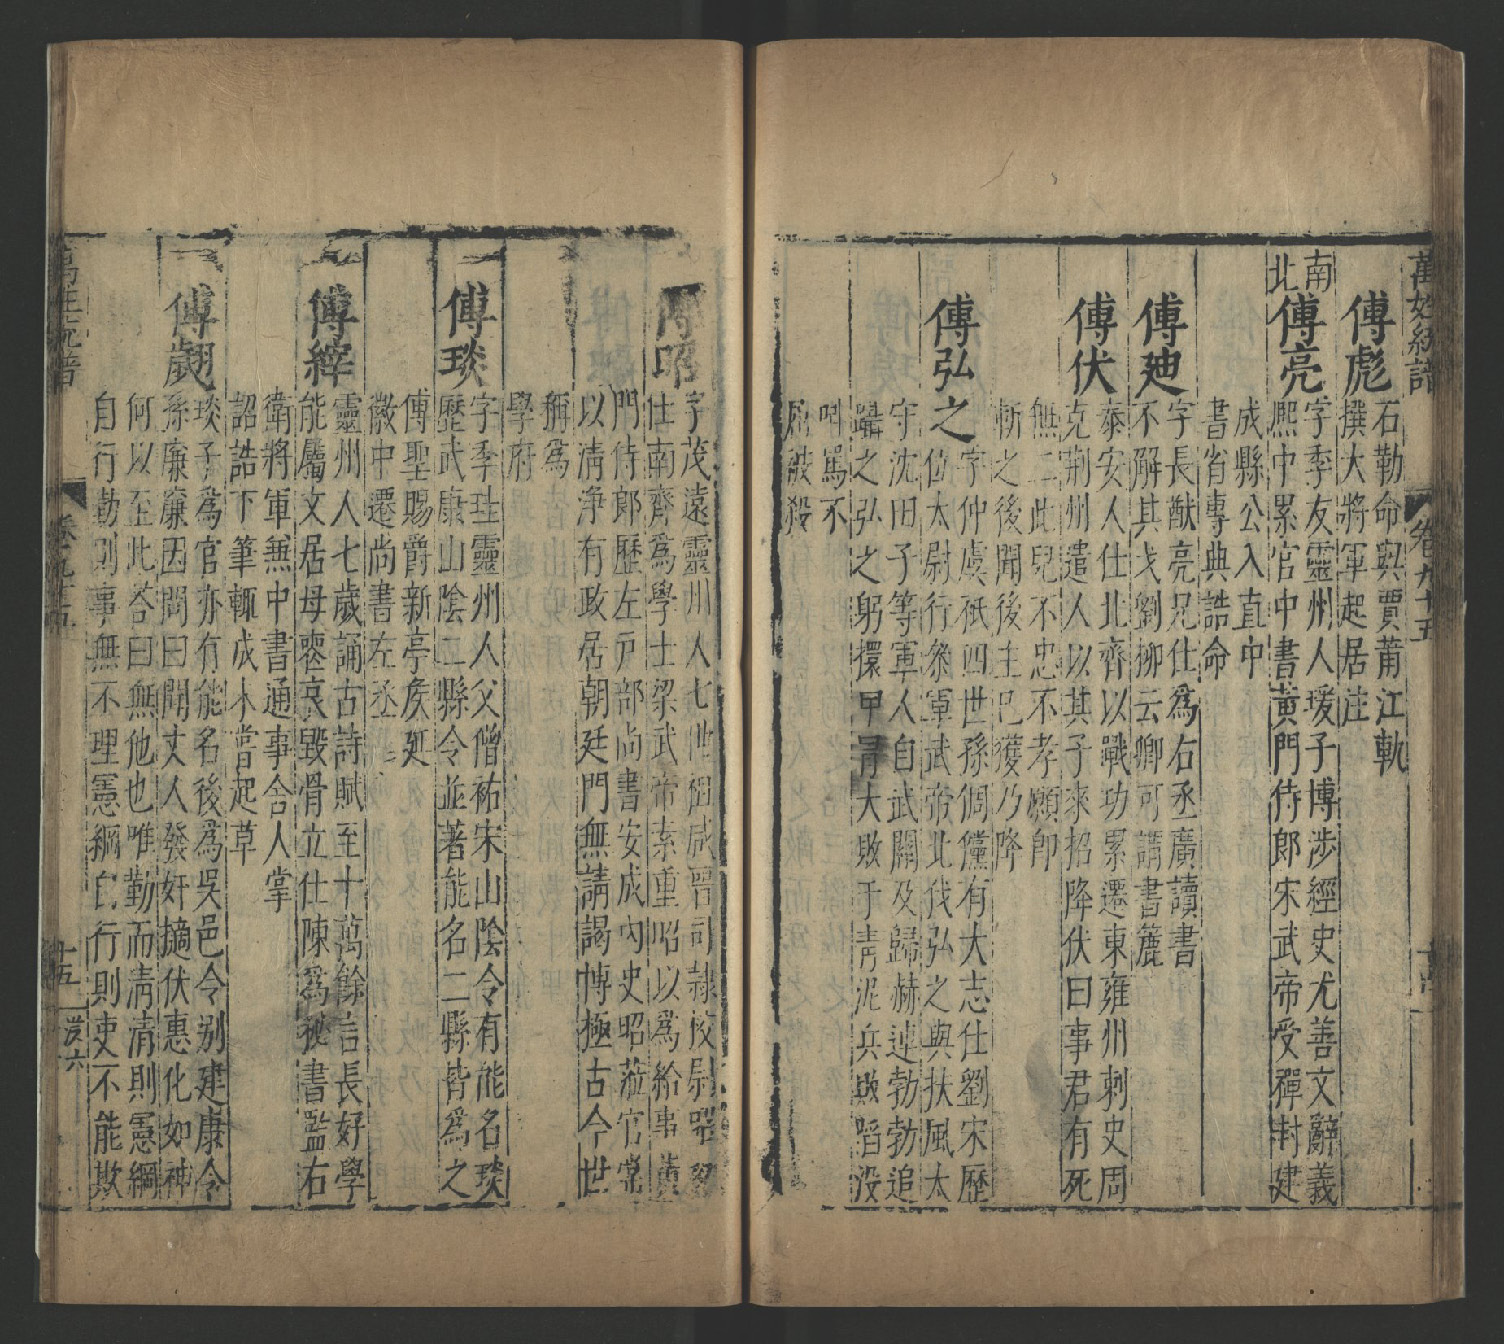 萬姓統譜 卷九十五
傅彪 石勒命與賈莆江軌
撰大將軍起居注
南北 傅亮 字季友靈州人瑗子博涉經史尤善文辭義
熙中累官中書黃門侍郎宋武帝受禪封建
成縣公入直中
書省專典誥命
傅廸 字長猷亮兄仕為右丞廣讀書
不解其戈劉柳云卿可謂書簏
傅伏 泰安人仕北齊以戰功累遷東雍州刺史周
克荆州遣人以其子來招降伏曰事君有死
無二此兒不忠不孝願即
斬之後聞後主巳獲乃降
傅弘之 字仲虔祇四世孫倜儻有大志仕劉宋歷
位太尉行參軍武帝北伐弘之與扶風太
守沈田子等軍人自武關及歸赫連勃勃追
躡之弘之躬擐甲冑大敗于青泥兵敗蹈没
呌罵不
屈被殺
傅昭 字茂遠靈州人七世祖咸晉司隷校尉昭
仕南齊為學士梁武帝素重昭以為給事黃
門侍郎歷左戶部尚書安成內史昭蒞官常
以清淨有政居朝廷門無請謁博極古今世
稱為
學府
傅琰 字季珪靈州人父僧祐宋山陰令有能名琰
歷武康山陰二縣令並著能名二縣皆為之
傅聖賜爵新亭矦延
徽中遷尚書左丞
傅縡 靈州人七歲誦古詩賦至十萬餘言長好學
能屬文居母䘮哀毀骨立仕陳為秘書監右
衛將軍無中書通事舍人掌
詔誥下筆輒成未嘗起草
傅翽 琰子為官亦有能名後為吳邑令别建康令
孫廉廉因問曰聞丈人發奸擿伏惠化如神
何以至此答曰無他也唯勤而清清則憲綱
自行勤則事無不理憲綱自行則吏不能欺
萬姓統譜 卷九十五 十五